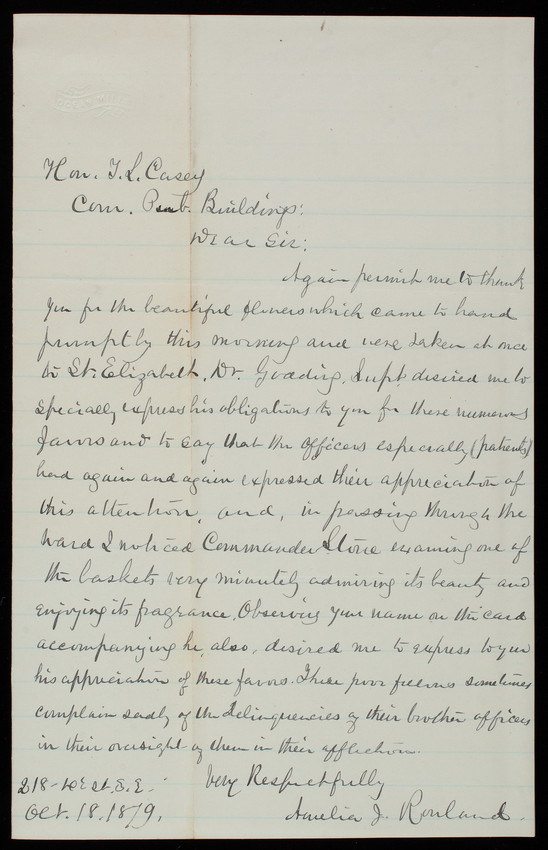 Hon. T. L. Casey
Com. Pub. Buildings:
Dear Sir:
Again permit me to thank
you for the beautiful flowers which came to hand
promptly this morning and were taken at once
to St. Elizabeth. Dr. Godding, Supt. desired me to
specially express his obligations to you for these numerous
favors and to say that the officers especially (patients)
had again and again expressed their appreciation of
this attention, and, in passing through the
ward I noticed Commander Stone examing one of
the baskets very minutely admiring its beauty and
enjoying its fragrance. Observing your name on the card
accompanying he, also, desired me to express to you
his appreciation of these favors. These poor fellows sometimes
complain sadly of the delinquencies of their brother officers
in their oversight of them in their affliction.
Very Respectfully
218- D St. S. E.
Oct. 18. 1879.
Amelia J. Rowland.